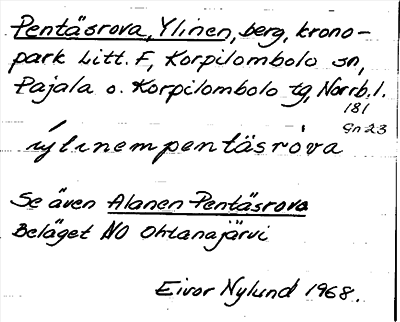 Pentäsrova, Ylinen, berg, krono-
park Litt. F, Korpilombolo sn,
Pajala o. Korpilombolo tg, Norrb. l.
181
Gn 23
íylinempentäsròva
Se även Alanen Pentäsrova
Beläget NO Ohtanajärvi
Eivor Nylund 1968.